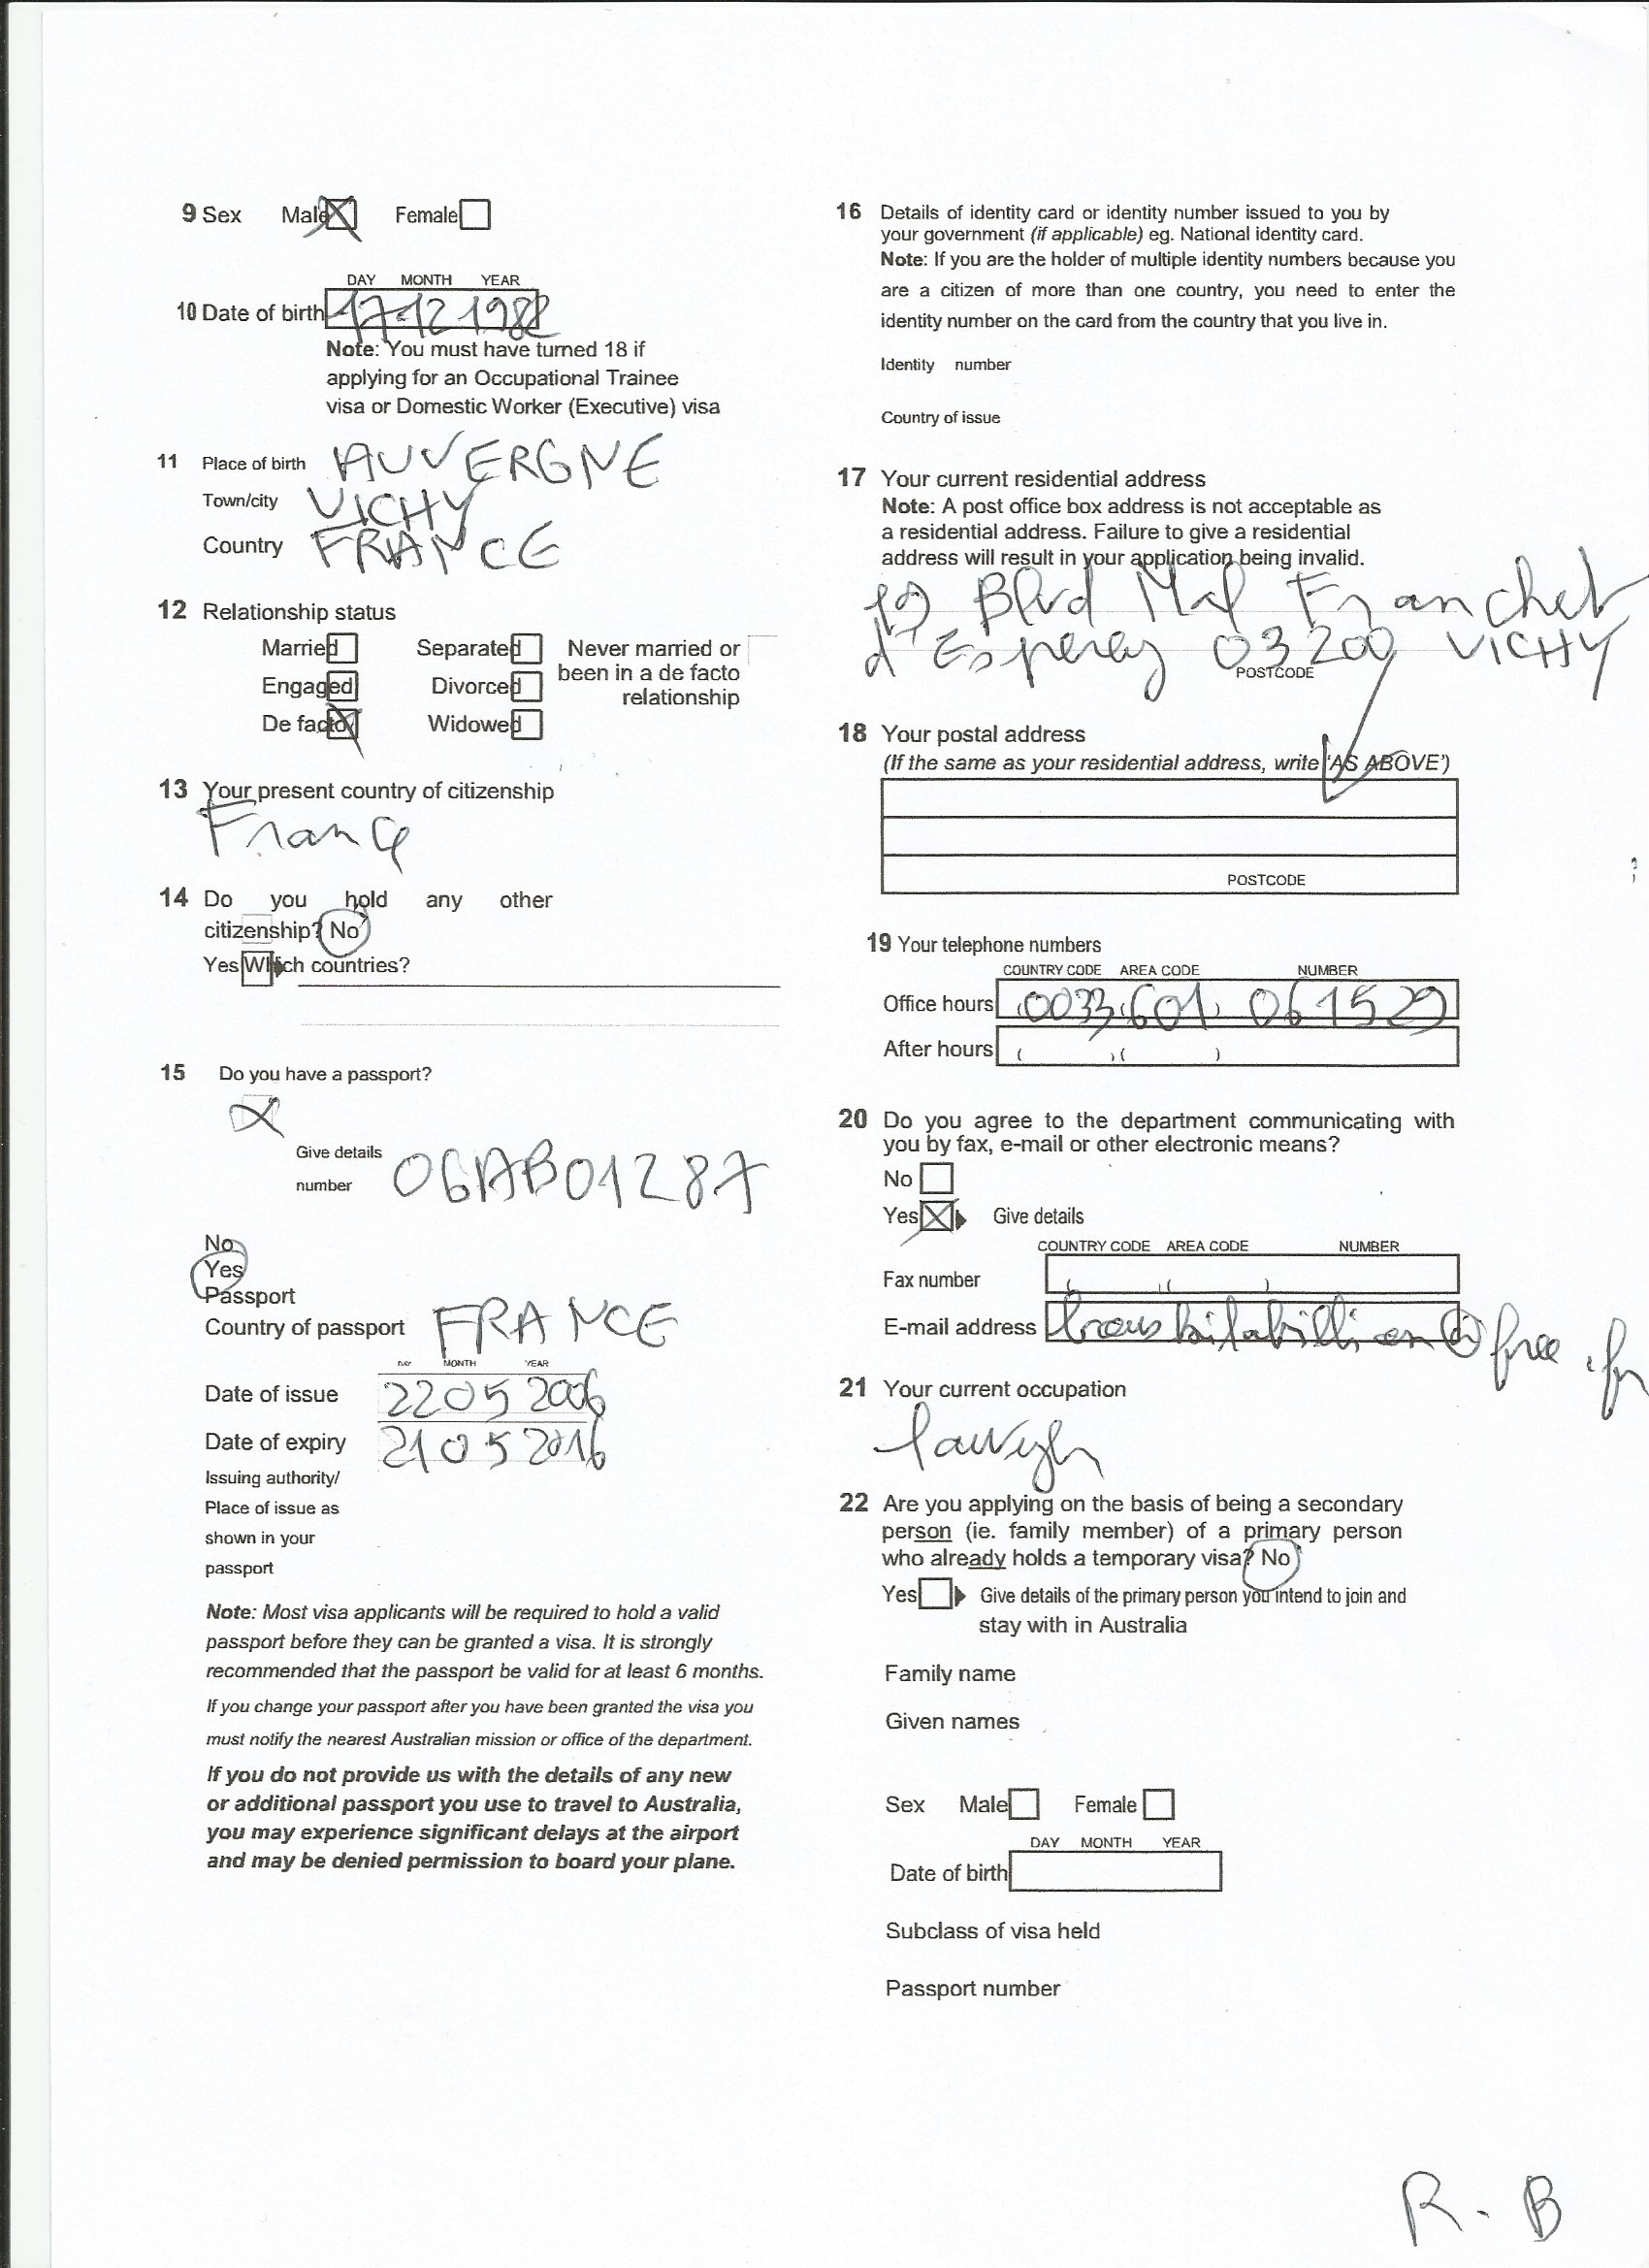 9 Sex Male Female
DAY MONTH YEAR
10 Date of birth 17 12 1982
Note: You must have turned 18 if
applying for an Occupational Trainee
visa or Domestic Worker (Executive) visa
11 Place of birth AUVERGNE
Town/city VICHY
Country FRANCE
12 Relationship status
Married Separated Never married or
Engaged Divorced been in a de facto
De facto Widowed relationship
13 Your present country of citizenship
France
14 Do you hold any other
citizenship? No
Yes Which countries?
15 Do you have a passport?
Give details
number 06AB01287
No
Yes
Passport
Country of passport FRANCE
MONTH YEAR
Date of issue 22 05 2006
Date of expiry 21 05 2016
Issuing authority/
Place of issue as
shown in your
passport
Note: Most visa applicants will be required to hold a valid
passport before they can be granted a visa. It is strongly
recommended that the passport be valid for at least 6 months.
If you change your passport after you have been granted the visa you
must notify the nearest Australian mission or office of the department.
If you do not provide us with the details of any new
or additional passport you use to travel to Australia,
you may experience significant delays at the airport
and may be denied permission to board your plane.
16 Details of identity card or identity number issued to you by
your government (if applicable) eg. National identity card.
Note: If you are the holder of multiple identity numbers because you
are a citizen of more than one country, you need to enter the
identity number on the card from the country that you live in.
Identity number
Country of issue
17 Your current residential address
Note: A post office box address is not acceptable as
a residential address. Failure to give a residential
address will result in your application being invalid.
Blvd Mal Franchet
d'Esperey 03200 VICHY
POSTCODE
18 Your postal address
(If the same as your residential address, write 'AS ABOVE')
POSTCODE
19 Your telephone numbers
COUNTRY CODE AREA CODE NUMBER
Office hours (0033) (601) 061529
After hours ( ) ( )
20 Do you agree to the department communicating with
you by fax, e-mail or other electronic means?
No
Yes Give details
COUNTRY CODE AREA CODE NUMBER
Fax number ( ) ( )
E-mail address @free.fr
21 Your current occupation
22 Are you applying on the basis of being a secondary
person (ie. family member) of a primary person
who already holds a temporary visa? No
Yes Give details of the primary person you intend to join and
stay with in Australia
Family name
Given names
Sex Male Female
DAY MONTH YEAR
Date of birth
Subclass of visa held
Passport number
R. B